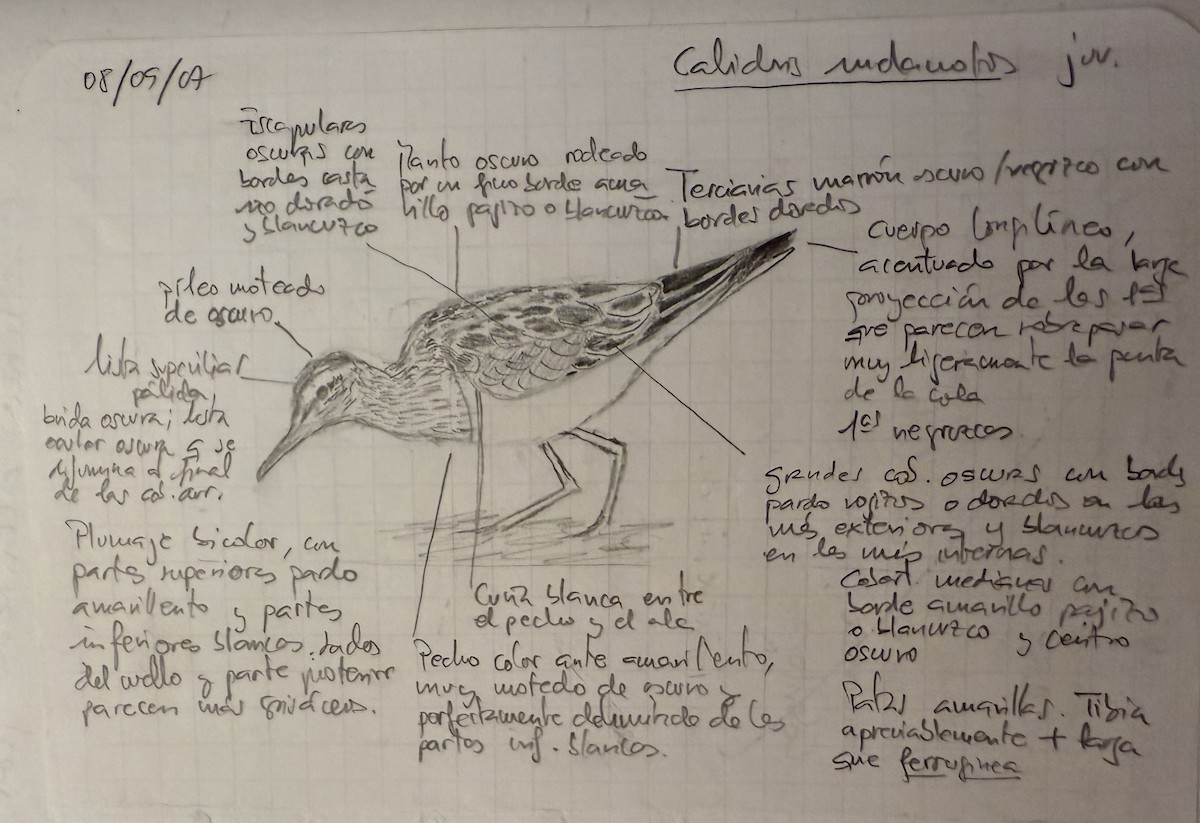 08/09/07
Calidris melanotos juv.
Escapulares
oscuras con
bordes casta
ño dorado
y blancuzco
Manto oscuro rodeado
por un fino borde ama
rillo pajizo o blancuzco
Terciarias marrón oscuro/negruzco con
bordes dorados
cuerpo longilíneo,
acentuado por la larga
proyección de las 1ªs
que parecen sobrepasar
muy ligeramente la punta
de la cola
1ªs negruzcas
píleo moteado
de oscuro
lista superciliar
pálida,
brida oscura; lista
ocular oscura q se
difumina al final
de las cob. aur.
grandes cob. oscuras con bordes
pardo rojizos o dorados en las
más exteriores y blancuzcos
en las más internas.
Cobert. medianas con
borde amarillo pajizo
o blancuzco y centro
oscuro
Plumaje bicolor, con
partes superiores pardo
amarillento y partes
inferiores blancas. Lados
del cuello y parte posterior
parecen más grisáceos.
Cuña blanca entre
el pecho y el ala
Pecho color ante amarillento,
muy moteado de oscuro y
perfectamente delimitado de las
partes inf. blancas.
Patas amarillas. Tibia
apreciablemente + larga
que ferruginea